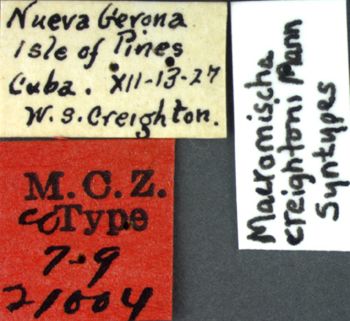 Nueva Gerona
Isle of Pines
Cuba. XII-13-27
W. S. Creighton.
M.C.Z.
coType
7-9
21004
Macromischa
creightoni Mann
Syntypes